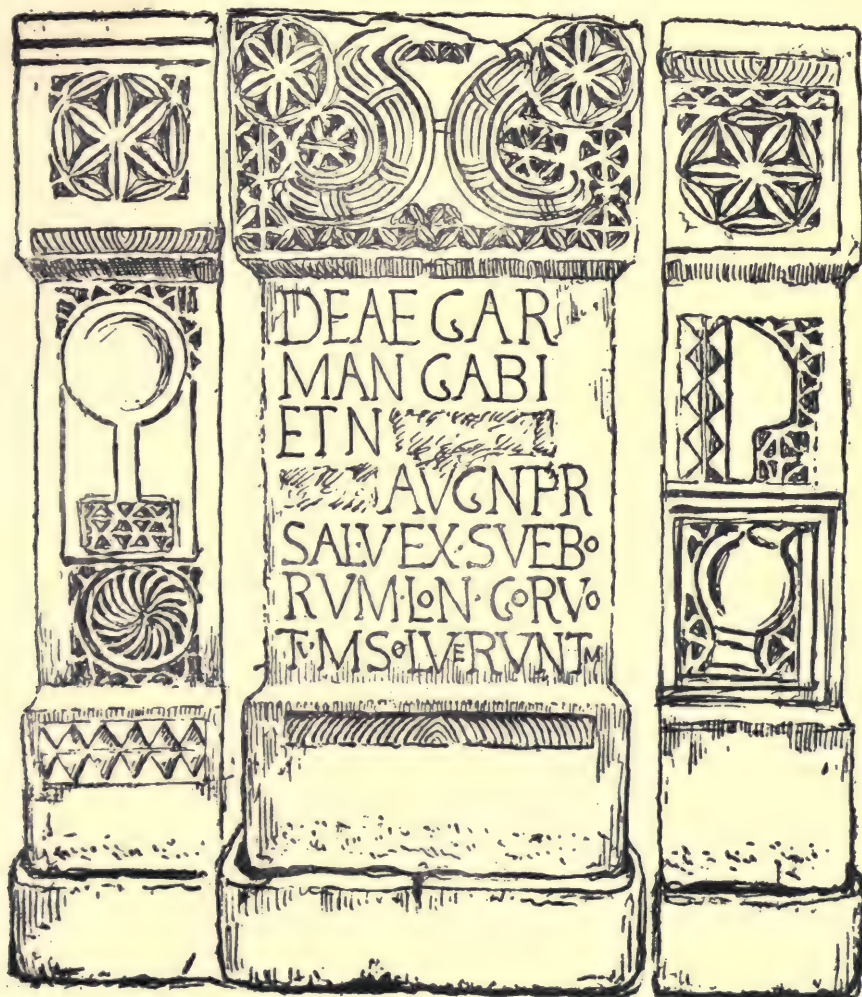 DEAE GAR
MAN GABI
ET N
AVG N PR
SAL·VEX·SVEBO
RVM·LON·GOR·VO
TV·M SOLVERVNT M